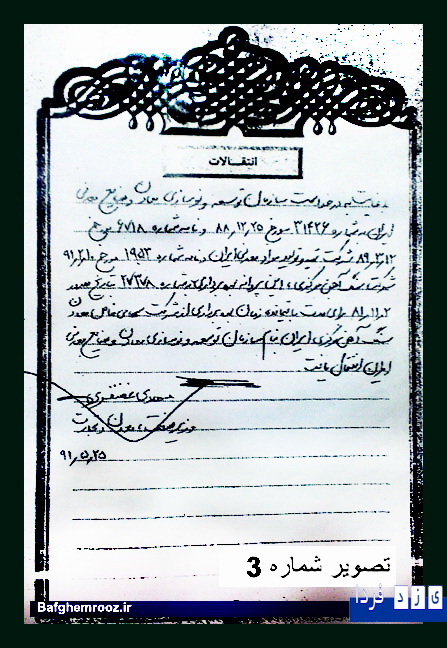 انتقالات
با عنایت به درخواست سازمان توسعه و نوسازی معادن و صنایع معدنی
ایران به شماره ۳۱۴۲۶ مورخ ۸۸,۱۲,۲۵ و نامه شماره ۶۷۱۸ مورخ
۸۹,۲,۱۲ شرکت تهیه و تولید مواد معدنی ایران و نامه شماره ۱۹۵۳ مورخ ۹۱,۲,۱۰
شرکت سنگ آهن مرکزی، این پروانه بهره برداری به شماره ۲۷۲۷۸ تاریخ صدور
۸۱,۱۱,۲ برای مدت باقیمانده زمان بهره برداری از شرکت سهامی خاص معادن
سنگ آهن مرکزی ایران بنام سازمان توسعه و نوسازی معادن و صنایع معدنی
ایران انتقال یافت
مهدی غضنفری
وزیر صنعت، معدن و تجارت
۹۱,۵,۲۵
تصویر شماره 3
Bafghemrooz.ir
یزد فردا